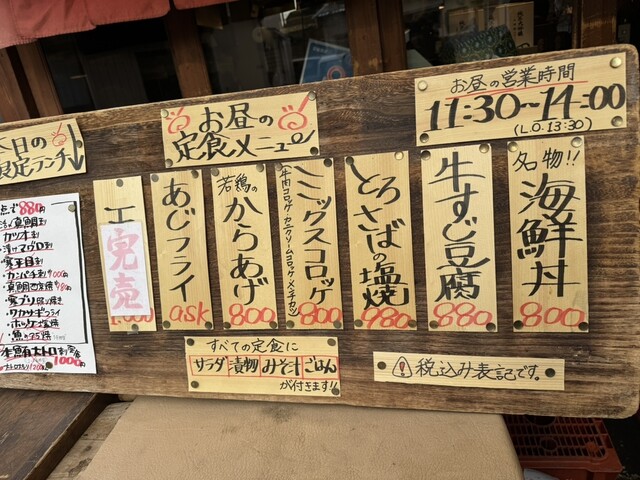 お昼の営業時間
11:30~14:00
(L.O.13:30)
お昼の
定食メニュー
今日の
限定ランチ
名物!!
海鮮丼
800
牛すじ豆腐
880
とろさばの塩焼
980
ミックスコロッケ
(牛肉コロッケ・カニクリームコロッケ・メンチカツ)
800
若鶏の
からあげ
800
あじフライ
ask
エ
完売
1,000
すべての定食に
サラダ 漬物 みそ汁 ごはん
が付きます!!
税込み表記です。
880円
カツオ刺
漬けマグロ刺
寒平目刺
カンパチ刺
寒ブリ
ワカサギフライ
1000円